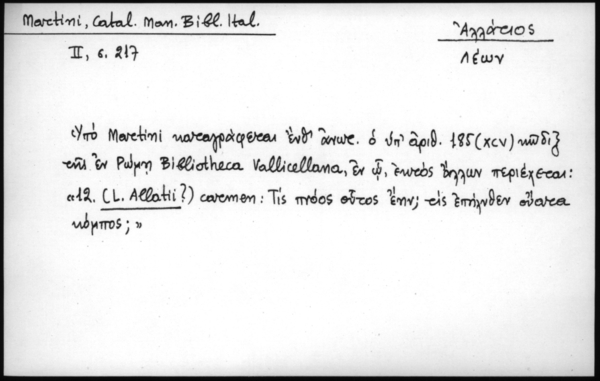 Martini, Catal. Man. Bibl. Ital.
Ἀλλάτιος
II, σ. 217
Λέων
Ὑπό Martini καταγράφεται ἔνθ' ἄνωτ. ὁ ὑπ' ἀριθ. 185 (XCV) κῶδιξ
τῆς ἐν Ρώμῃ Bibliotheca Vallicellana, ἐν ᾧ, ἐκτός ἄλλων περιέχεται:
«12. (L. Allatii?) carmen: Τίς πνόος οὗτος ἔην; τίς ἐπήλυθεν οὔατα
κόμπος; »